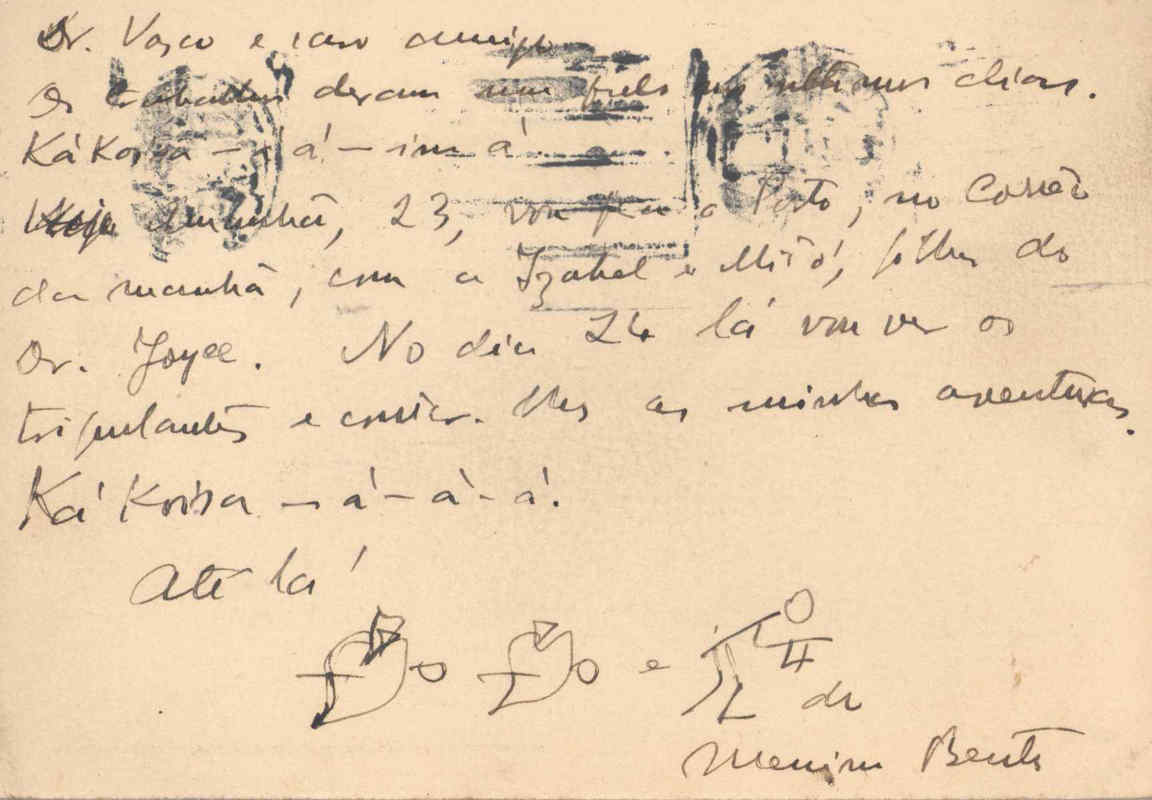 Dr. Vasco e caro amigo
Os trabalhos deram um pulo nos ultimos dias.
Ká Koisa – á –
Amanhã, 23, vou para o Porto, no Correio
da manhã, com a Izabel e Miló, filhas do
Dr. Joyce. No dia 24 lá vou ver os
tripulantes e comer. as minhas aventuras.
Ká Koisa – á – á – á.
Até lá!
e
do
Menino Bento